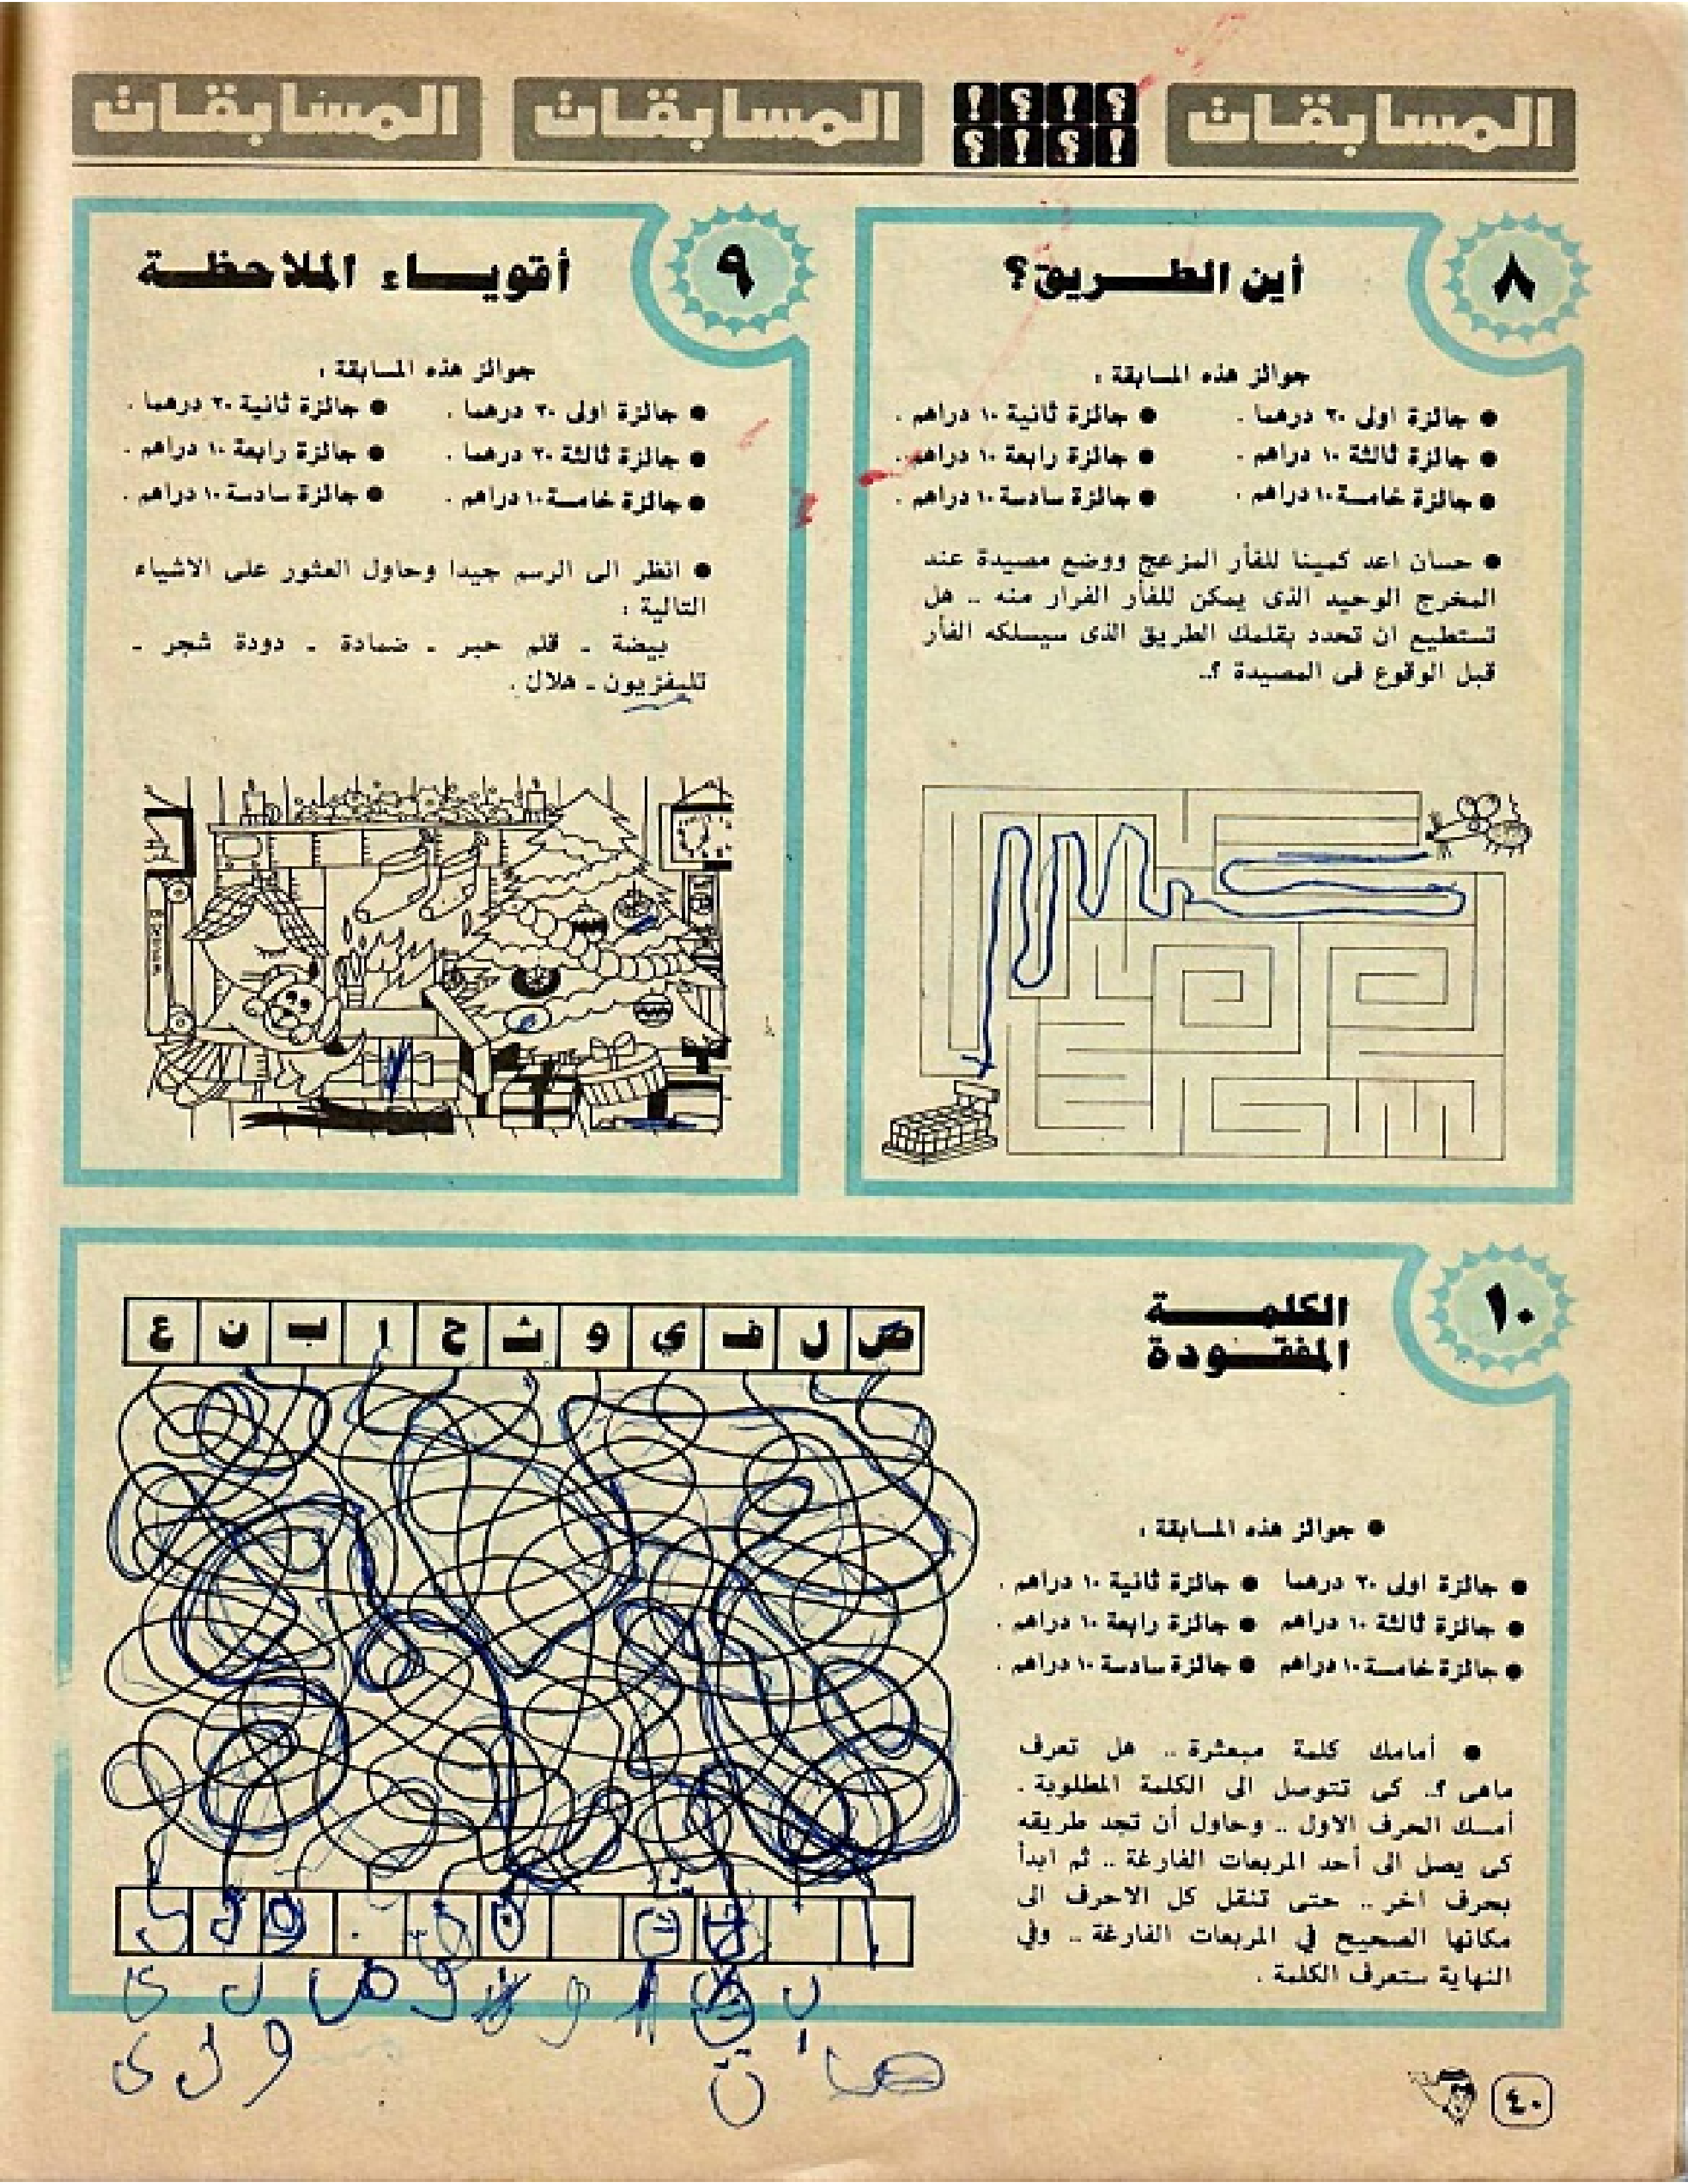 المسابقات ؟!؟! المسابقات المسابقات
!؟!؟
٨
أين الطريق؟
جوائز هذه المسابقة :
● جائزة اولى ٣٠ درهما . ● جائزة ثانية ١٠ دراهم .
● جائزة ثالثة ١٠ دراهم . ● جائزة رابعة ١٠ دراهم .
● جائزة خامسة ١٠ دراهم . ● جائزة سادسة ١٠ دراهم .
● حسان اعد كمينا للفأر المزعج ووضع مصيدة عند
المخرج الوحيد الذى يمكن للفأر الفرار منه .. هل
تستطيع ان تحدد بقلمك الطريق الذى سيسلكه الفأر
قبل الوقوع فى المصيدة ؟..
٩
أقوياء الملاحظة
جوائز هذه المسابقة :
● جائزة اولى ٣٠ درهما . ● جائزة ثانية ٣٠ درهما .
● جائزة ثالثة ٣٠ درهما . ● جائزة رابعة ١٠ دراهم .
● جائزة خامسة ١٠ دراهم . ● جائزة سادسة ١٠ دراهم .
● انظر الى الرسم جيدا وحاول العثور على الاشياء
التالية :
بيضة ـ قلم حبر ـ ضمادة ـ دودة شجر ـ
تليفزيون ـ هلال .
١٠
الكلمة
المفقودة
● جوائز هذه المسابقة :
● جائزة اولى ٣٠ درهما ● جائزة ثانية ١٠ دراهم .
● جائزة ثالثة ١٠ دراهم ● جائزة رابعة ١٠ دراهم .
● جائزة خامسة ١٠ دراهم ● جائزة سادسة ١٠ دراهم .
● أمامك كلمة مبعثرة .. هل تعرف
ماهى ؟.. كى تتوصل الى الكلمة المطلوبة .
أمسك الحرف الاول .. وحاول أن تجد طريقه
كى يصل الى أحد المربعات الفارغة .. ثم ابدأ
بحرف اخر .. حتى تنقل كل الاحرف الى
مكانها الصحيح في المربعات الفارغة .. وفي
النهاية ستعرف الكلمة .
ص ل ف ي و ث ح ا ب ن ع
٤٠